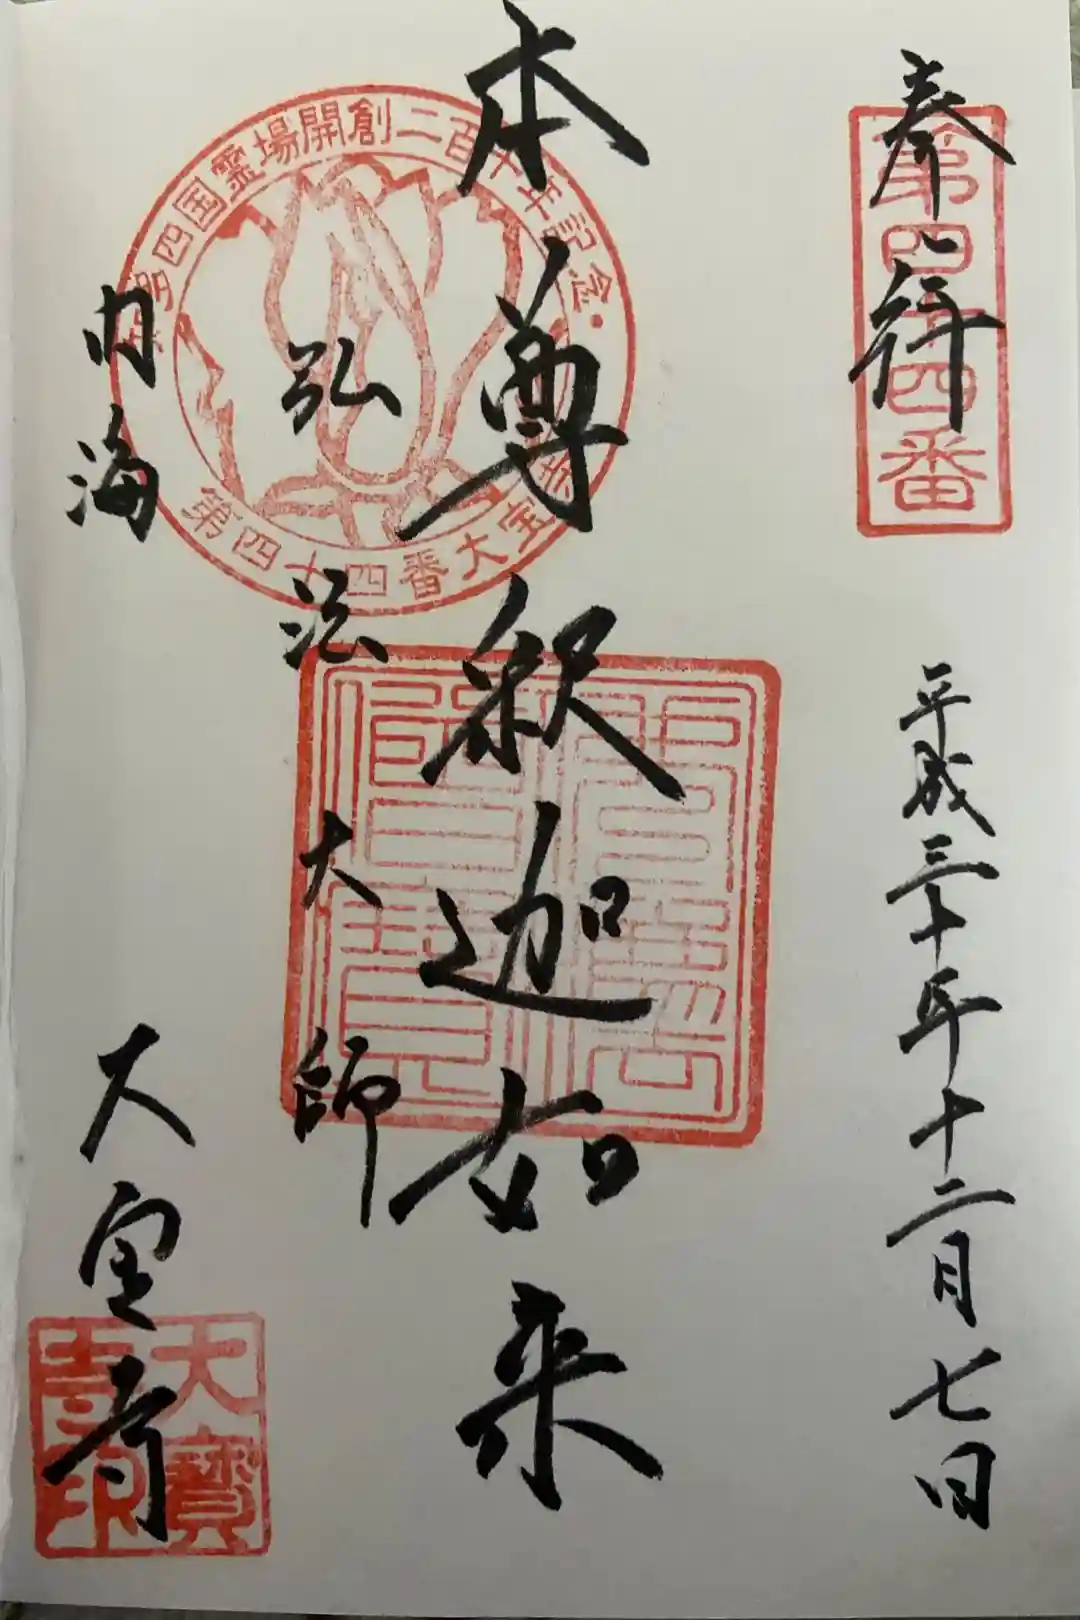 奉拝
第四十四番
平成三十年十二月七日
本尊釈迦如来
弘法大師
知多四国霊場開創二百十年記念・
第四十四番大宝寺
内海
大宝寺
大寶
寺印